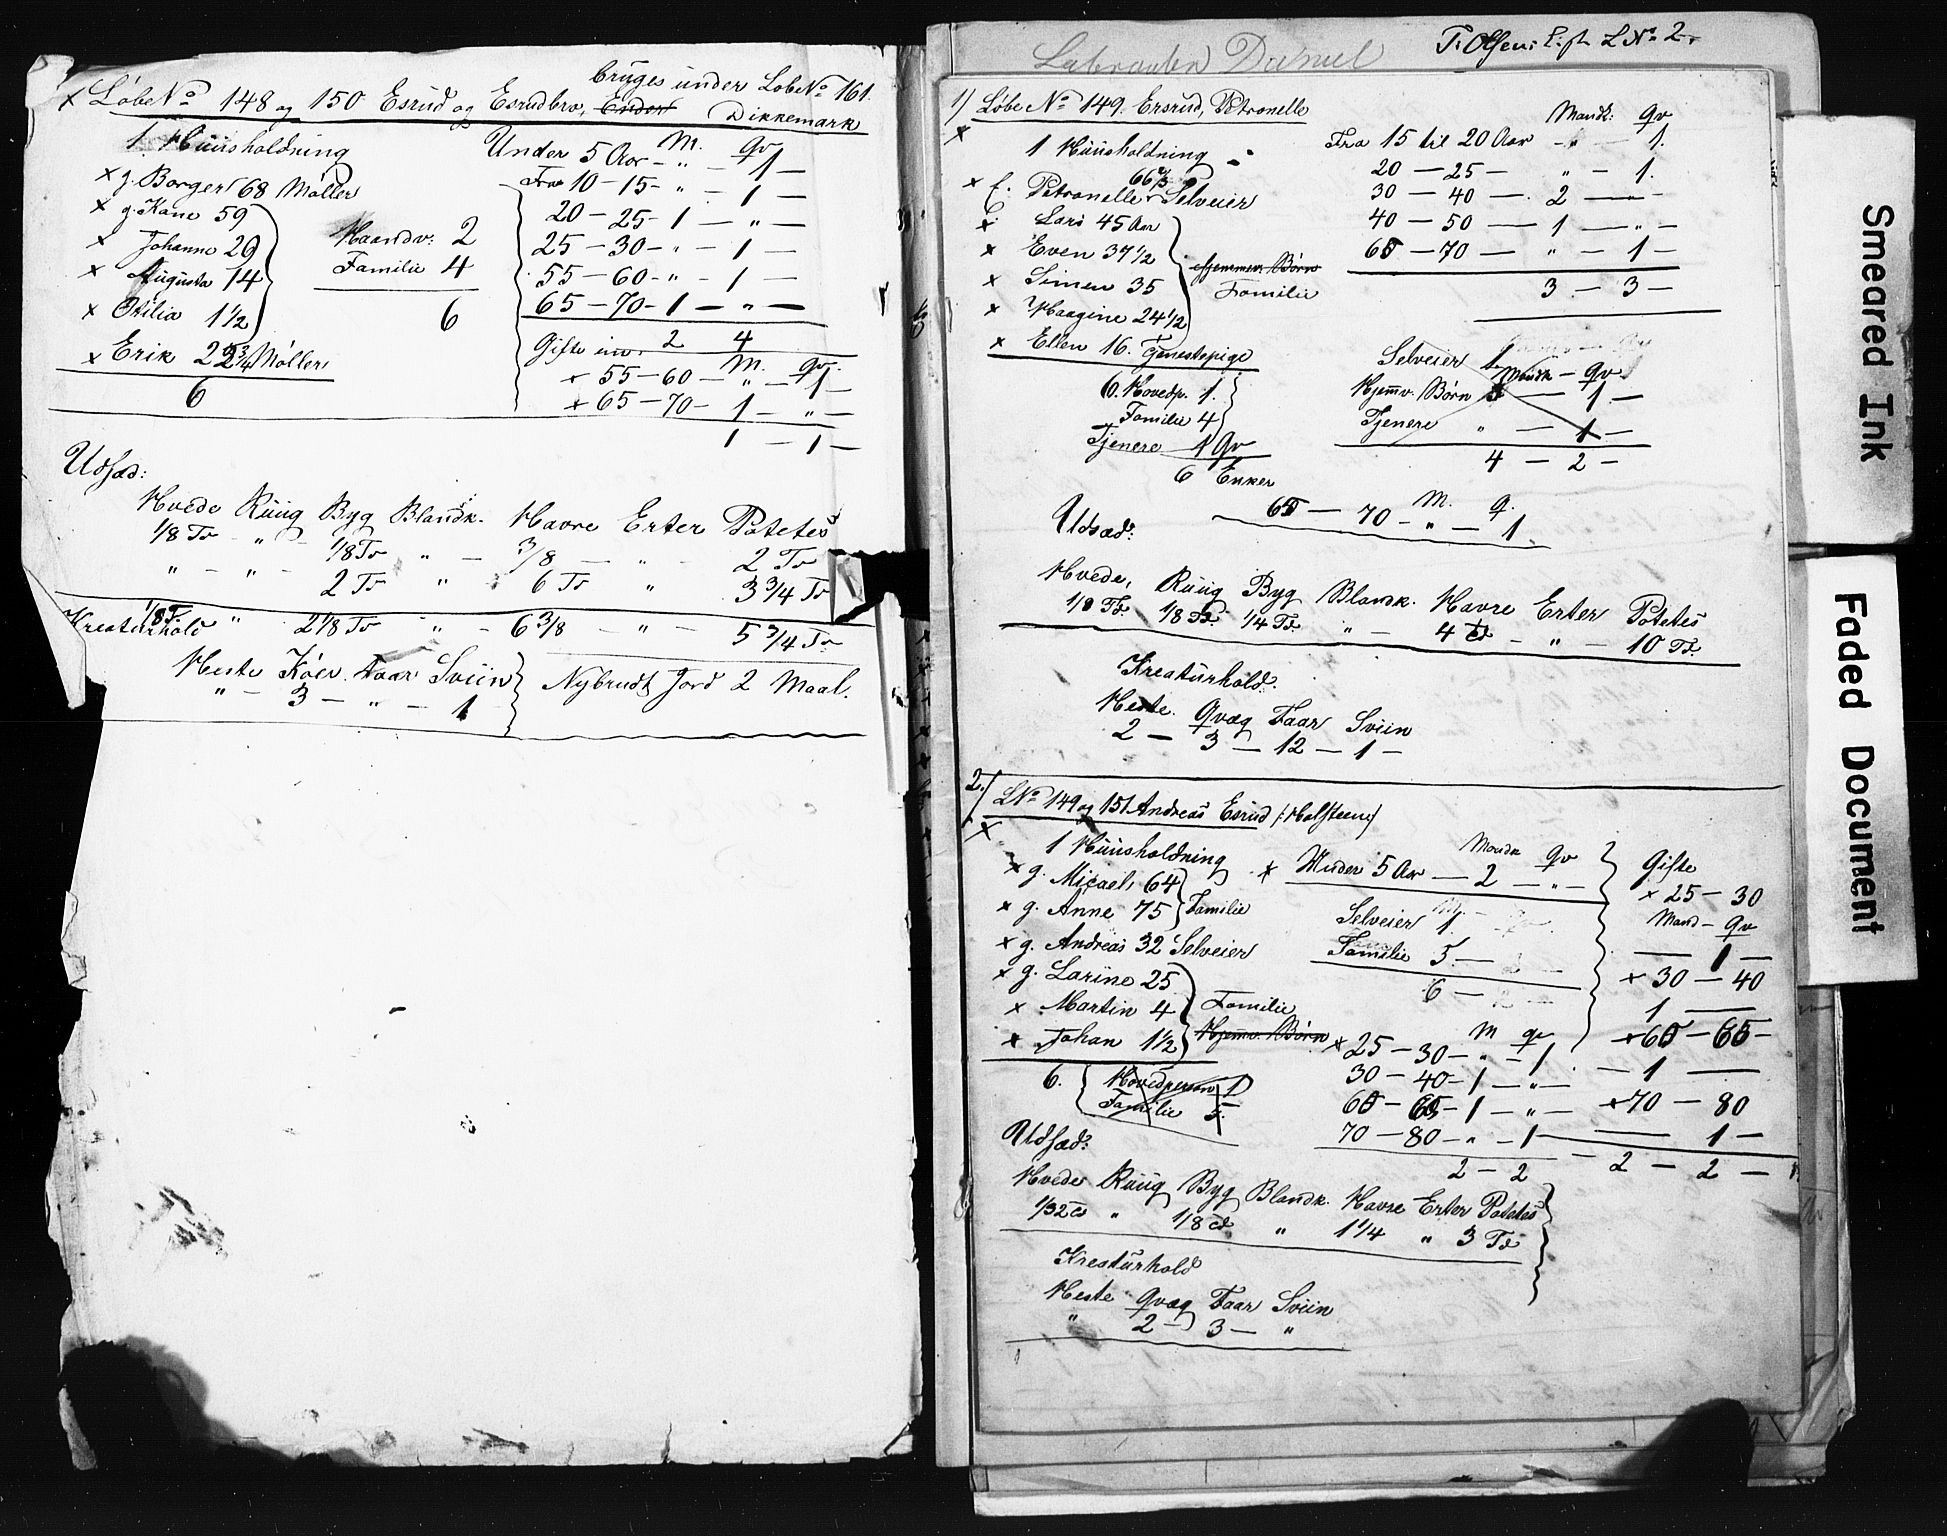 bruges under LobeNo 161.
x LóbeNo 148 og 150 Esrud og Esrudbro, Dikkemark
1 Huusholdning
x g. Borger 68 Møller
x g. Kone 59
x Johanne 29
x Augusta 14
x Otilia 1 1/2
x Erik 22 3/4 Møller
6
Haandv: 2
Familie 4
6
M. Qv
Under 5 Aar - " - 1 -
Fra 10 - 15 - " - 1 -
20 - 25 - 1 - " -
25 - 30 - " - 1 -
55 - 60 - " - 1 -
65 - 70 - 1 - " -
2 4
Gifte M. Qv.
x 55 - 60 - " - 1 -
x 65 - 70 - 1 - " -
1 - 1 -
Udsæd:
Hvede Ruug Byg Blandk. Havre Erter Potetes
1/8 Tr - " - 1/8 Tr " - 3/8 - " - 2 Tr
" - " - 2 Tr " 6 Tr " 3 3/4 Tr
1/8 T. " 2 1/8 Tr " - 6 3/8 - " - 5 3/4 Tr
Kreaturhold
Heste Köer Faar Sviin
" - 3 - " - 1
Nybrudt Jord 2 Maal.
T. Olsen: L No 2.
1) Löbe No 149. Ersrud, Petronelle
x
1 Huusholdning
66 1/2
x E. Petronelle Selveier
x Lars 45 Aar
x Even 37 1/2
x Simen 35
x Haagine 24 1/2
x Ellen 16. Tjenestepige
Hjemmev. Børn
Familie
6. Hovedp. 1.
Familie 4
Tjenere 1 Qv
6 Enker
Mandk: Qv
Fra 15 til 20 Aar - " - 1.
20 - 25 - " - 1.
30 - 40 - 2 - " -
40 - 50 - 1 - " -
65 - 70 - " - 1 -
3 - 3 -
Selveier 1
Mandk - Qv
Hjemv. Børn 3 - 1 -
Tjenere " - 1 -
4 - 2 -
M. Q.
65 - 70 - " - 1.
Udsæd:
Hvede, Ruug Byg Blandk. Havre Erter Potetes
1/8 Td. 1/8 Td. 1/4 Td. " - 4 Td - " - 10 Td.
Kreaturhold:
Heste. Qvæg Faar Sviin
2 - 3 - 12 - 1 -
2.) LNo 149 og 151 Andreas Esrud /:Holsteen:/
x
1 Huusholdning
x g. Micael, 64
x g. Anne 75
Familie
x g. Andreas 32 Selveier
x g. Larine 25
x Martin 4
x Johan 1 1/2
Familie
Hjemv. Børn
6. Hovedperson 1
Familie 5.
Mandk Qv
x Under 5 Aar - 2 - " -
Selveier 1.
Familie 5. -
6 -
M qv
x 25 - 30 - " - 1
30 - 40 - 1 - " -
60 - 65 - 1 - " -
70 - 80 - " - 1
2 - 2
Gifte
x 25 - 30
Mand - Qv
- 1 -
x 30 - 40
1 -
x 60 - 65 -
- 1 -
x 70 - 80
- 1 -
2 - 2 -
Udsæd:
Hvede Ruug Byg Blandk. Havre Erter Potetes
1/32 Td " 1/8 Td " 1 1/4 " 3 Td
Kreaturhold
Heste Qvæg Faar Sviin
" 2 - 3 - "
Smeared Ink
Faded Document